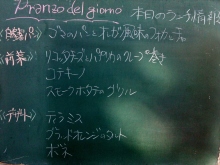 Pranzo del giorno 本日のランチ
(自家製パン) ゴマのパンとオレガノ風味のフォカッチャ
(前菜) リコッタチーズとパプリカのクレープ巻き
コテキーノ
スモークホタテのグリル
(デザート) ティラミス
ブラッドオレンジのタルト
ボネ